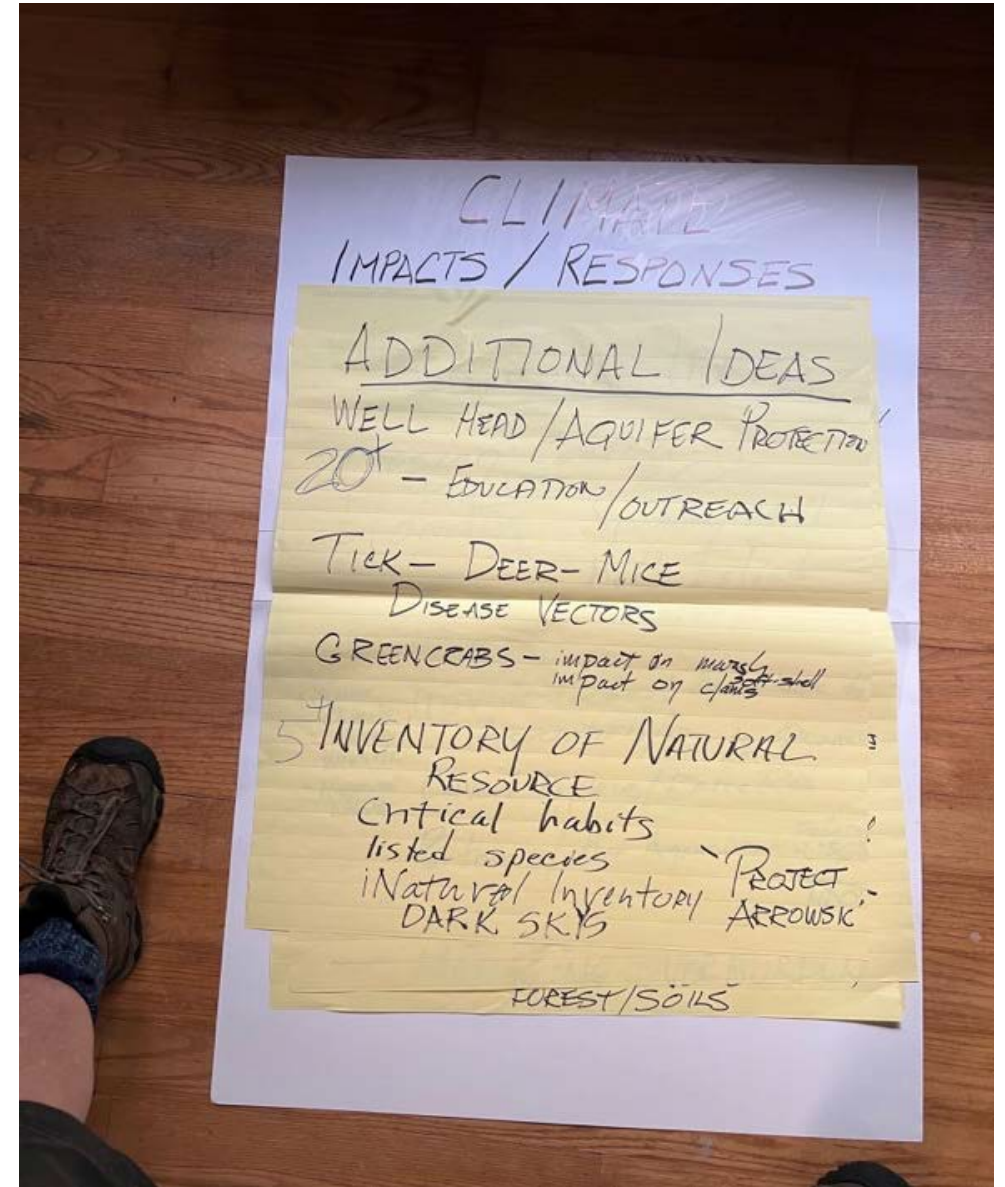 CLIMATE
IMPACTS / RESPONSES
ADDITIONAL IDEAS
WELL HEAD / AQUIFER PROTECTION
20+ - EDUCATION / OUTREACH
TICK - DEER - MICE
DISEASE VECTORS
GREENCRABS - impact on marsh
impact on soft-shell clams
5+ INVENTORY OF NATURAL
RESOURCE
Critical habits
listed species
iNatural Inventory "PROJECT
DARK SKYS ARROWSIC"
FOREST/SOILS